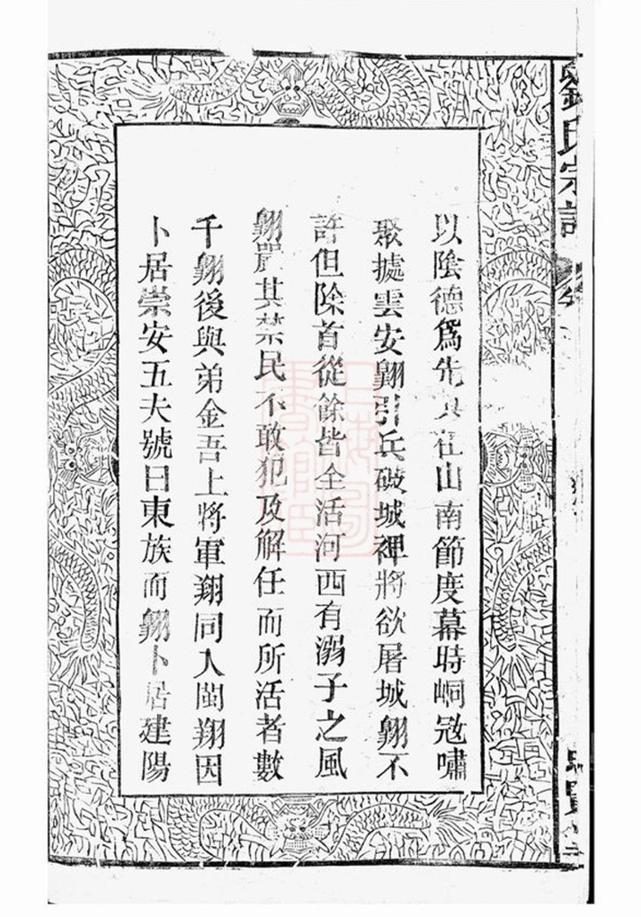 劉氏宗譜
以陰德爲先其在山南節度幕時峒寇嘯
聚㨿雲安翺引兵破城裨將欲屠城翺不
許但除首從餘皆全活河西有溺子之風
翺嚴其禁民不敢犯及解任而所活者數
千翺後與弟金吾上將軍翔同入閩翔因
卜居崇安五夫號曰東族而翺卜居建陽